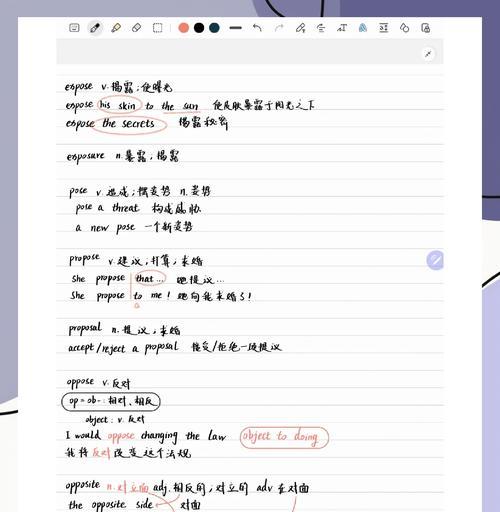 expose v.揭露;使曝光
expose his skin to the sun 使皮肤暴露于阳光之下
expose the secrets 揭露秘密
exposure n.暴露;揭露
pose v.造成;摆姿势 n.姿势
pose a threat 构成威胁
a new pose 一个新姿势
propose v.建议;打算;求婚
She propose that... 她提议...
She propose to me! 她向我求婚了!
proposal n.提议;求婚
accept/reject a proposal 接受/拒绝一项提议
oppose v.反对
op=ob-:相对、相反
object: v.反对
I would oppose changing the law object to doing
我将反对改变这个法规
opposite n.对立面 adj.相反的;对立的 adv 在对面
the opposite side 对面